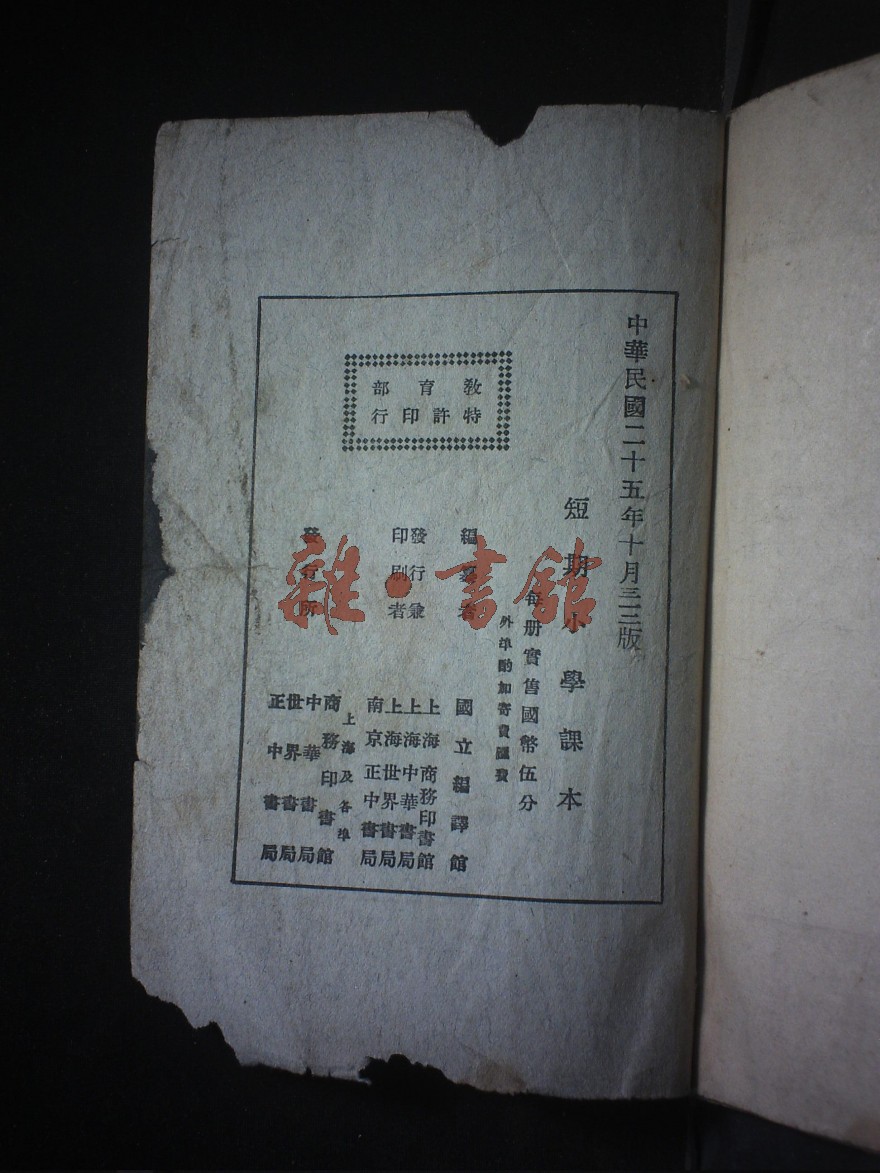 中華民國二十五年十月三二版
短期小學課本
每册實售國幣伍分
外埠酌加寄費匯費
教育部
特許印行
編纂者
國立編譯館
發行兼
印刷者
上海商務印書館
上海中華書局
上海世界書局
南京正中書局
發行所
上海及各埠
商務印書館
中華書局
世界書局
正中書局
雜·書館